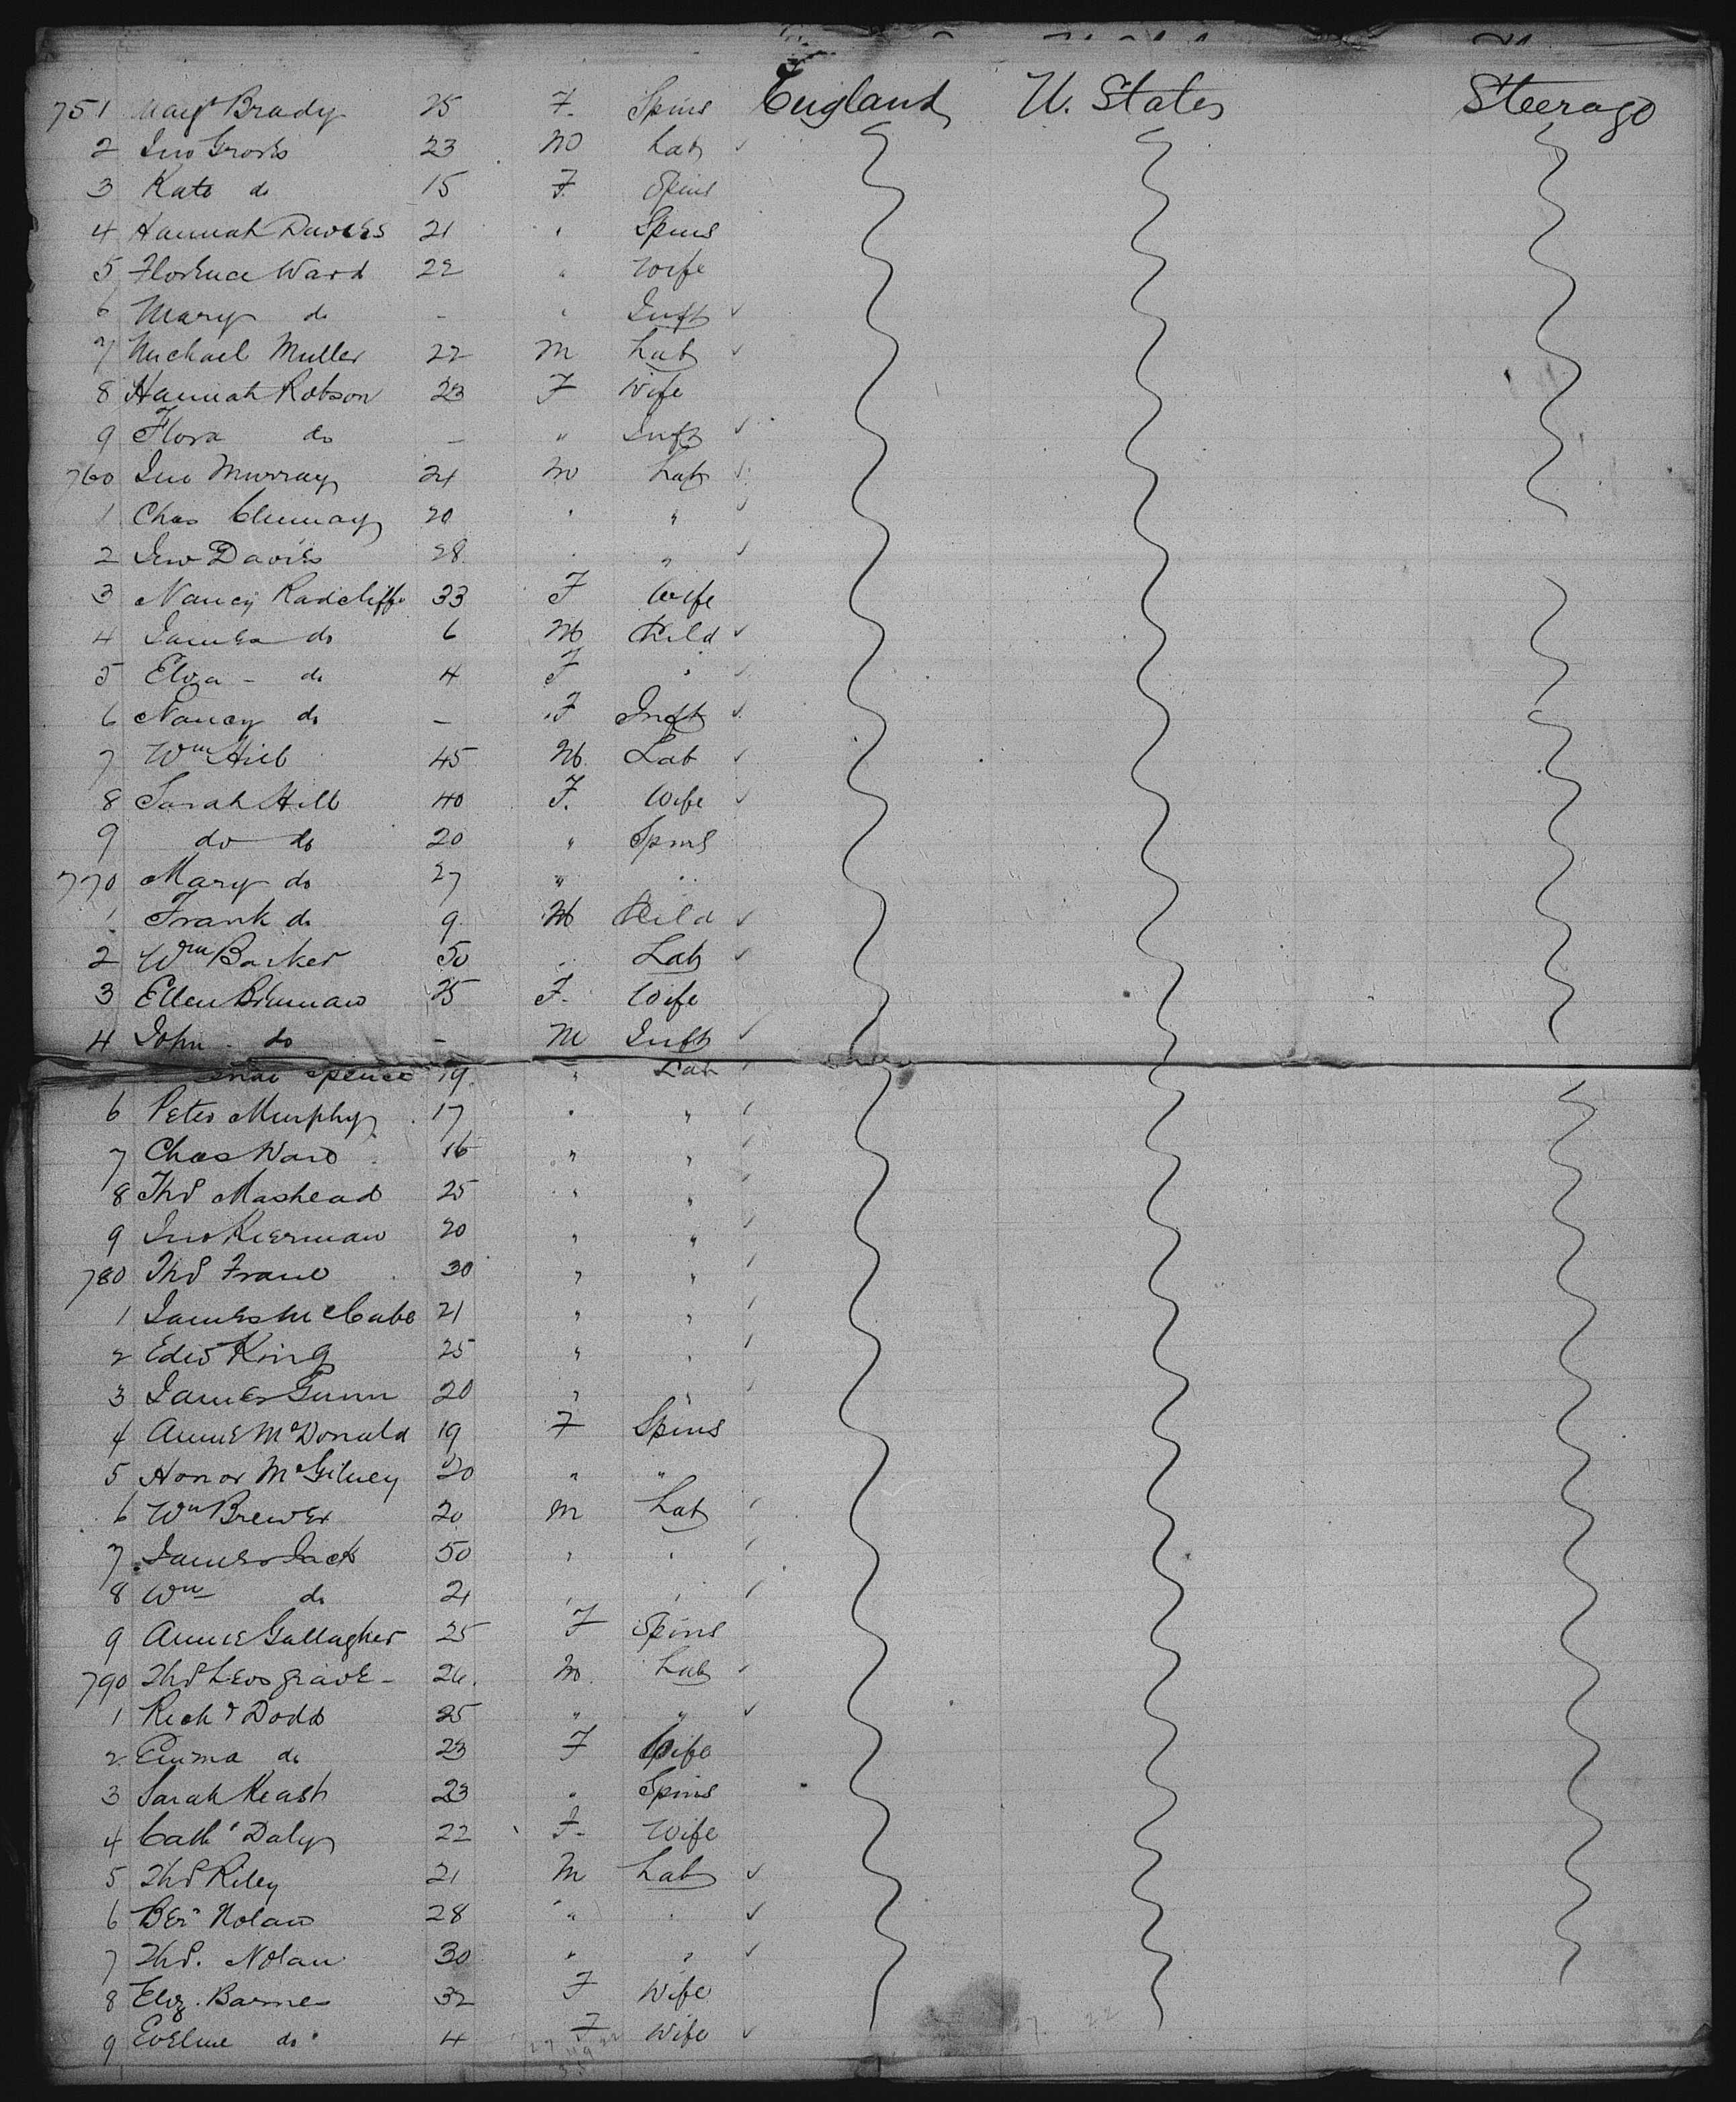 751 Marg't Brady 25 F. Spins England U. States Steerage
2 Jno Gross 23 M Lab ✓
3 Kate do 15 F. Spins
4 Hannah Davies 21 " Spins
5 Florence Ward 22 " Wife
6 Mary do - " Inft ✓
7 Michael Muller 22 M Lab ✓
8 Hannah Robson 23 F Wife
9 Flora do - " Inft ✓
760 Jno Murray 24 M Lab ✓
1 Chas 20 " " ✓
2 Davies 28 " " ✓
3 Nancy Radcliffe 33 F Wife
4 James do 6 M Child ✓
5 Eliza - do 4 F " ✓
6 Nancy do - F Inft ✓
7 Wm Hill 45 M. Lab ✓
8 Sarah Hill 40 F. Wife ✓
9 do do 20 " Spins
770 Mary do 27 " "
1 Frank do 9 M Child ✓
2 Wm Barker 50 " Lab ✓
3 Ellen Brennan 25 F. Wife
4 John - do - M Inft ✓
Spence 19 " Lab ✓
6 Peter Murphy 17 " " ✓
7 Chas Ward 16 " " ✓
8 Thos Mashead 25 " " ✓
9 Jno Kiernan 20 " " ✓
780 Thos 30 " " ✓
1 James McCabe 21 " " ✓
2 Edwd King 25 " " ✓
3 James Gunn 20 " " ✓
4 Annie McDonald 19 F Spins
5 Honor 20 " "
6 Wm Brewer 20 M Lab ✓
7 James Jack 50 " " ✓
8 Wm do 21 " " ✓
9 Annie Gallagher 25 F Spins
790 Thos 26. M. Lab ✓
1 Richd Dodd 25 " " ✓
2 Emma do 23 F Wife
3 Sarah Keast 23 " Spins
4 Cath' Daly 22 F. Wife
5 Thos Riley 21 M Lab ✓
6 Ber Nolan 28 " " ✓
7 Thos. Nolan 30 " " ✓
8 Eliz. Barnes 32 F Wife
9 Eveline do 4 F Wife ✓